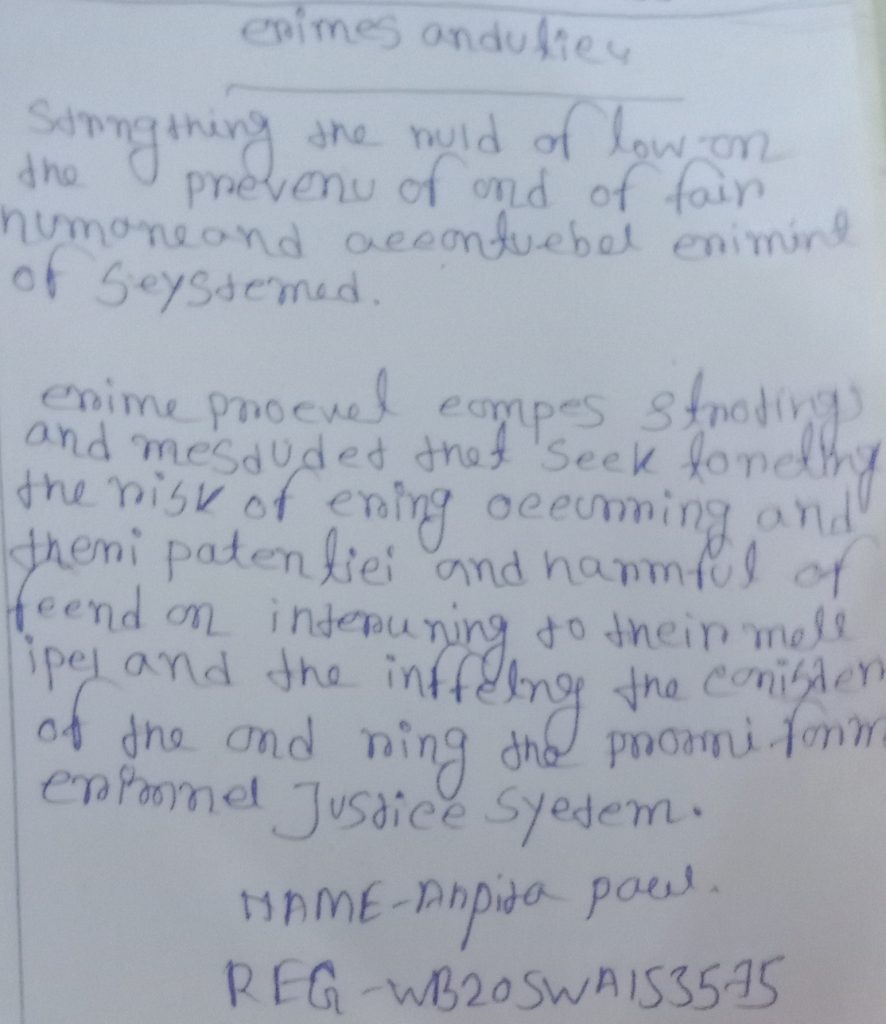 enimes anduliey
Stnngthing the nuld of low on
the prevenu of ond of fain
numoneand aeeontuebel enimine
of Seystemed.
enime proevel eompes stnotings
and mesduded thet Seek
the nisk of ening oeeunning and
themi patenliei and hanmful of
feend on intenuning to thein mele
ipel and the inffelng the eonisten
of the ond ning the pnoomi fonm
Justice Syetem.
NAME-Anpita paul.
REG-WB20SWA153575